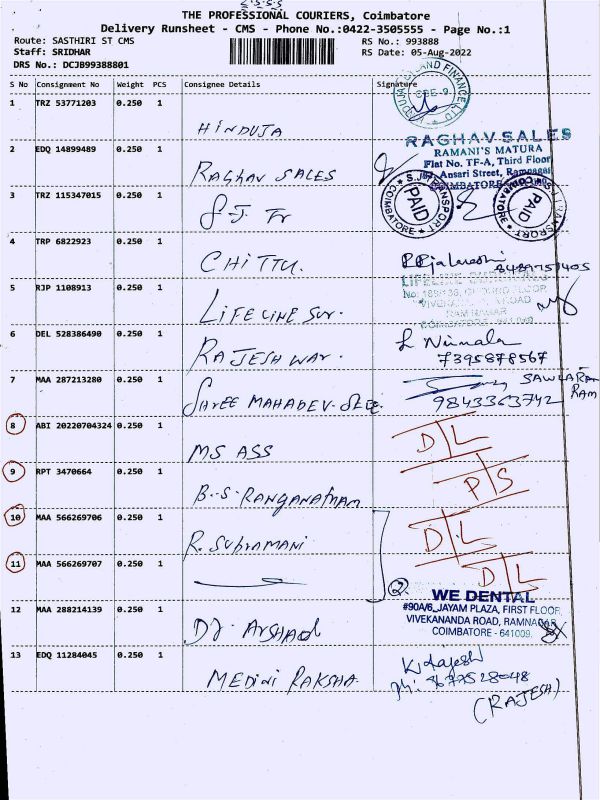 THE PROFESSIONAL COURIERS, Coimbatore
Delivery Runsheet - CMS - Phone No.:0422-3505555 - Page No.:1
Route: SASTHIRI ST CMS
RS No.: 993888
Staff: SRIDHAR
RS Date: 05-Aug-2022
DRS No.: DCJB99388801
S No Consignment No Weight PCS Consignee Details Signature
1 TRZ 53771203 0.250 1
HINDUJA
2 EDQ 14899489 0.250 1
RAGHAV SALES
RAGHAV SALES
RAMANI'S MATURA
Flat No. TF-A, Third Floor
Ansari Street, Ramnagar
COIMBATORE
3 TRZ 115347015 0.250 1
S-J. Tr
S.J. TRANSPORT
PAID
COIMBATORE
TRANSPORT
PAID
COIMBATORE
4 TRP 6822923 0.250 1
CHITTU.
8489751405
5 RJP 1108913 0.250 1
LIFELINE SUR.
RAM NAGAR
6 DEL 528386490 0.250 1
RAJESHWAR.
L Nirmala
7395878567
7 MAA 287213280 0.250 1
SHREE MAHADEV.
SAWLARAM
9843363742
8 ABI 20220704324 0.250 1
MS ASS
D L
9 RPT 3470664 0.250 1
B.S. RANGANATHAM
P S
10 MAA 566269706 0.250 1
R. SUBRAMANI
D L
11 MAA 566269707 0.250 1
D L
2
12 MAA 288214139 0.250 1
Dr. Arshad
WE DENTAL
#90A/6, JAYAM PLAZA, FIRST FLOOR,
VIVEKANANDA ROAD, RAMNAGAR,
COIMBATORE - 641009.
13 EDQ 11284045 0.250 1
MEDINI RAKSHA.
K Rajesh
Ph: 8677528048
(RAJESH)